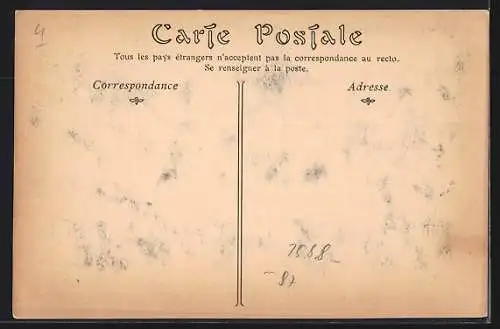 4
Carte Postale
Tous les pays étrangers n'acceptent pas la correspondance au recto.
Se renseigner à la poste.
Correspondance
Adresse